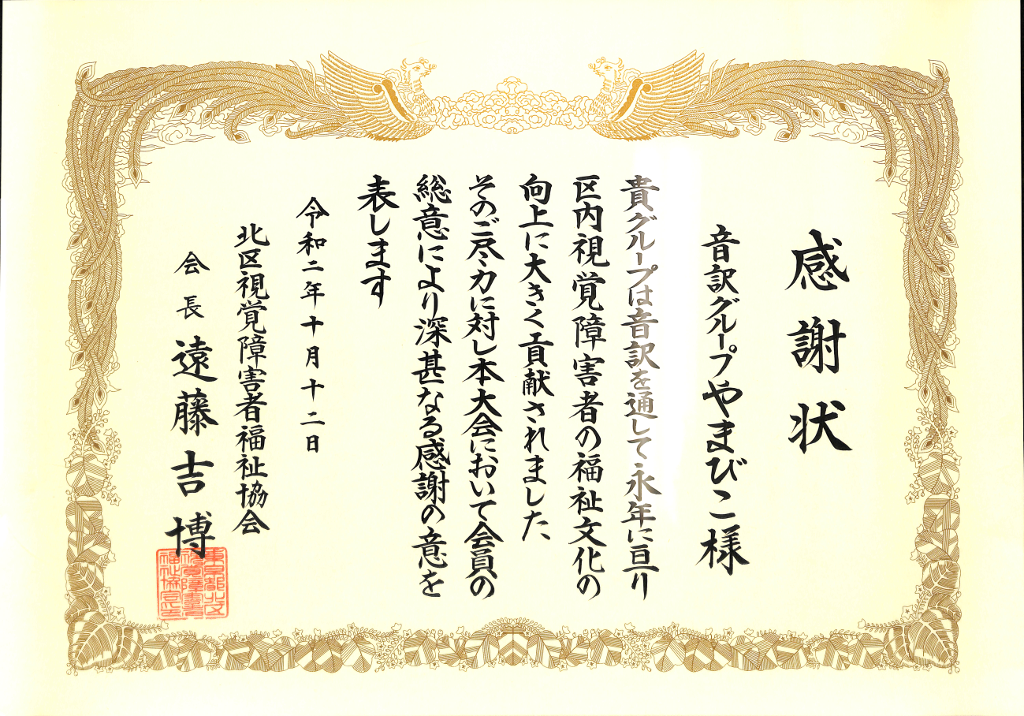 感謝状
音訳グループやまびこ様
貴グループは音訳を通して永年に亘り
区内視覚障害者の福祉文化の
向上に大きく貢献されました
そのご尽力に対し本大会において会員の
総意により深甚なる感謝の意を
表します
令和二年十月十二日
北区視覚障害者福祉協会
会長 遠藤吉博
東京都北区
視覚障害者
福祉協会之